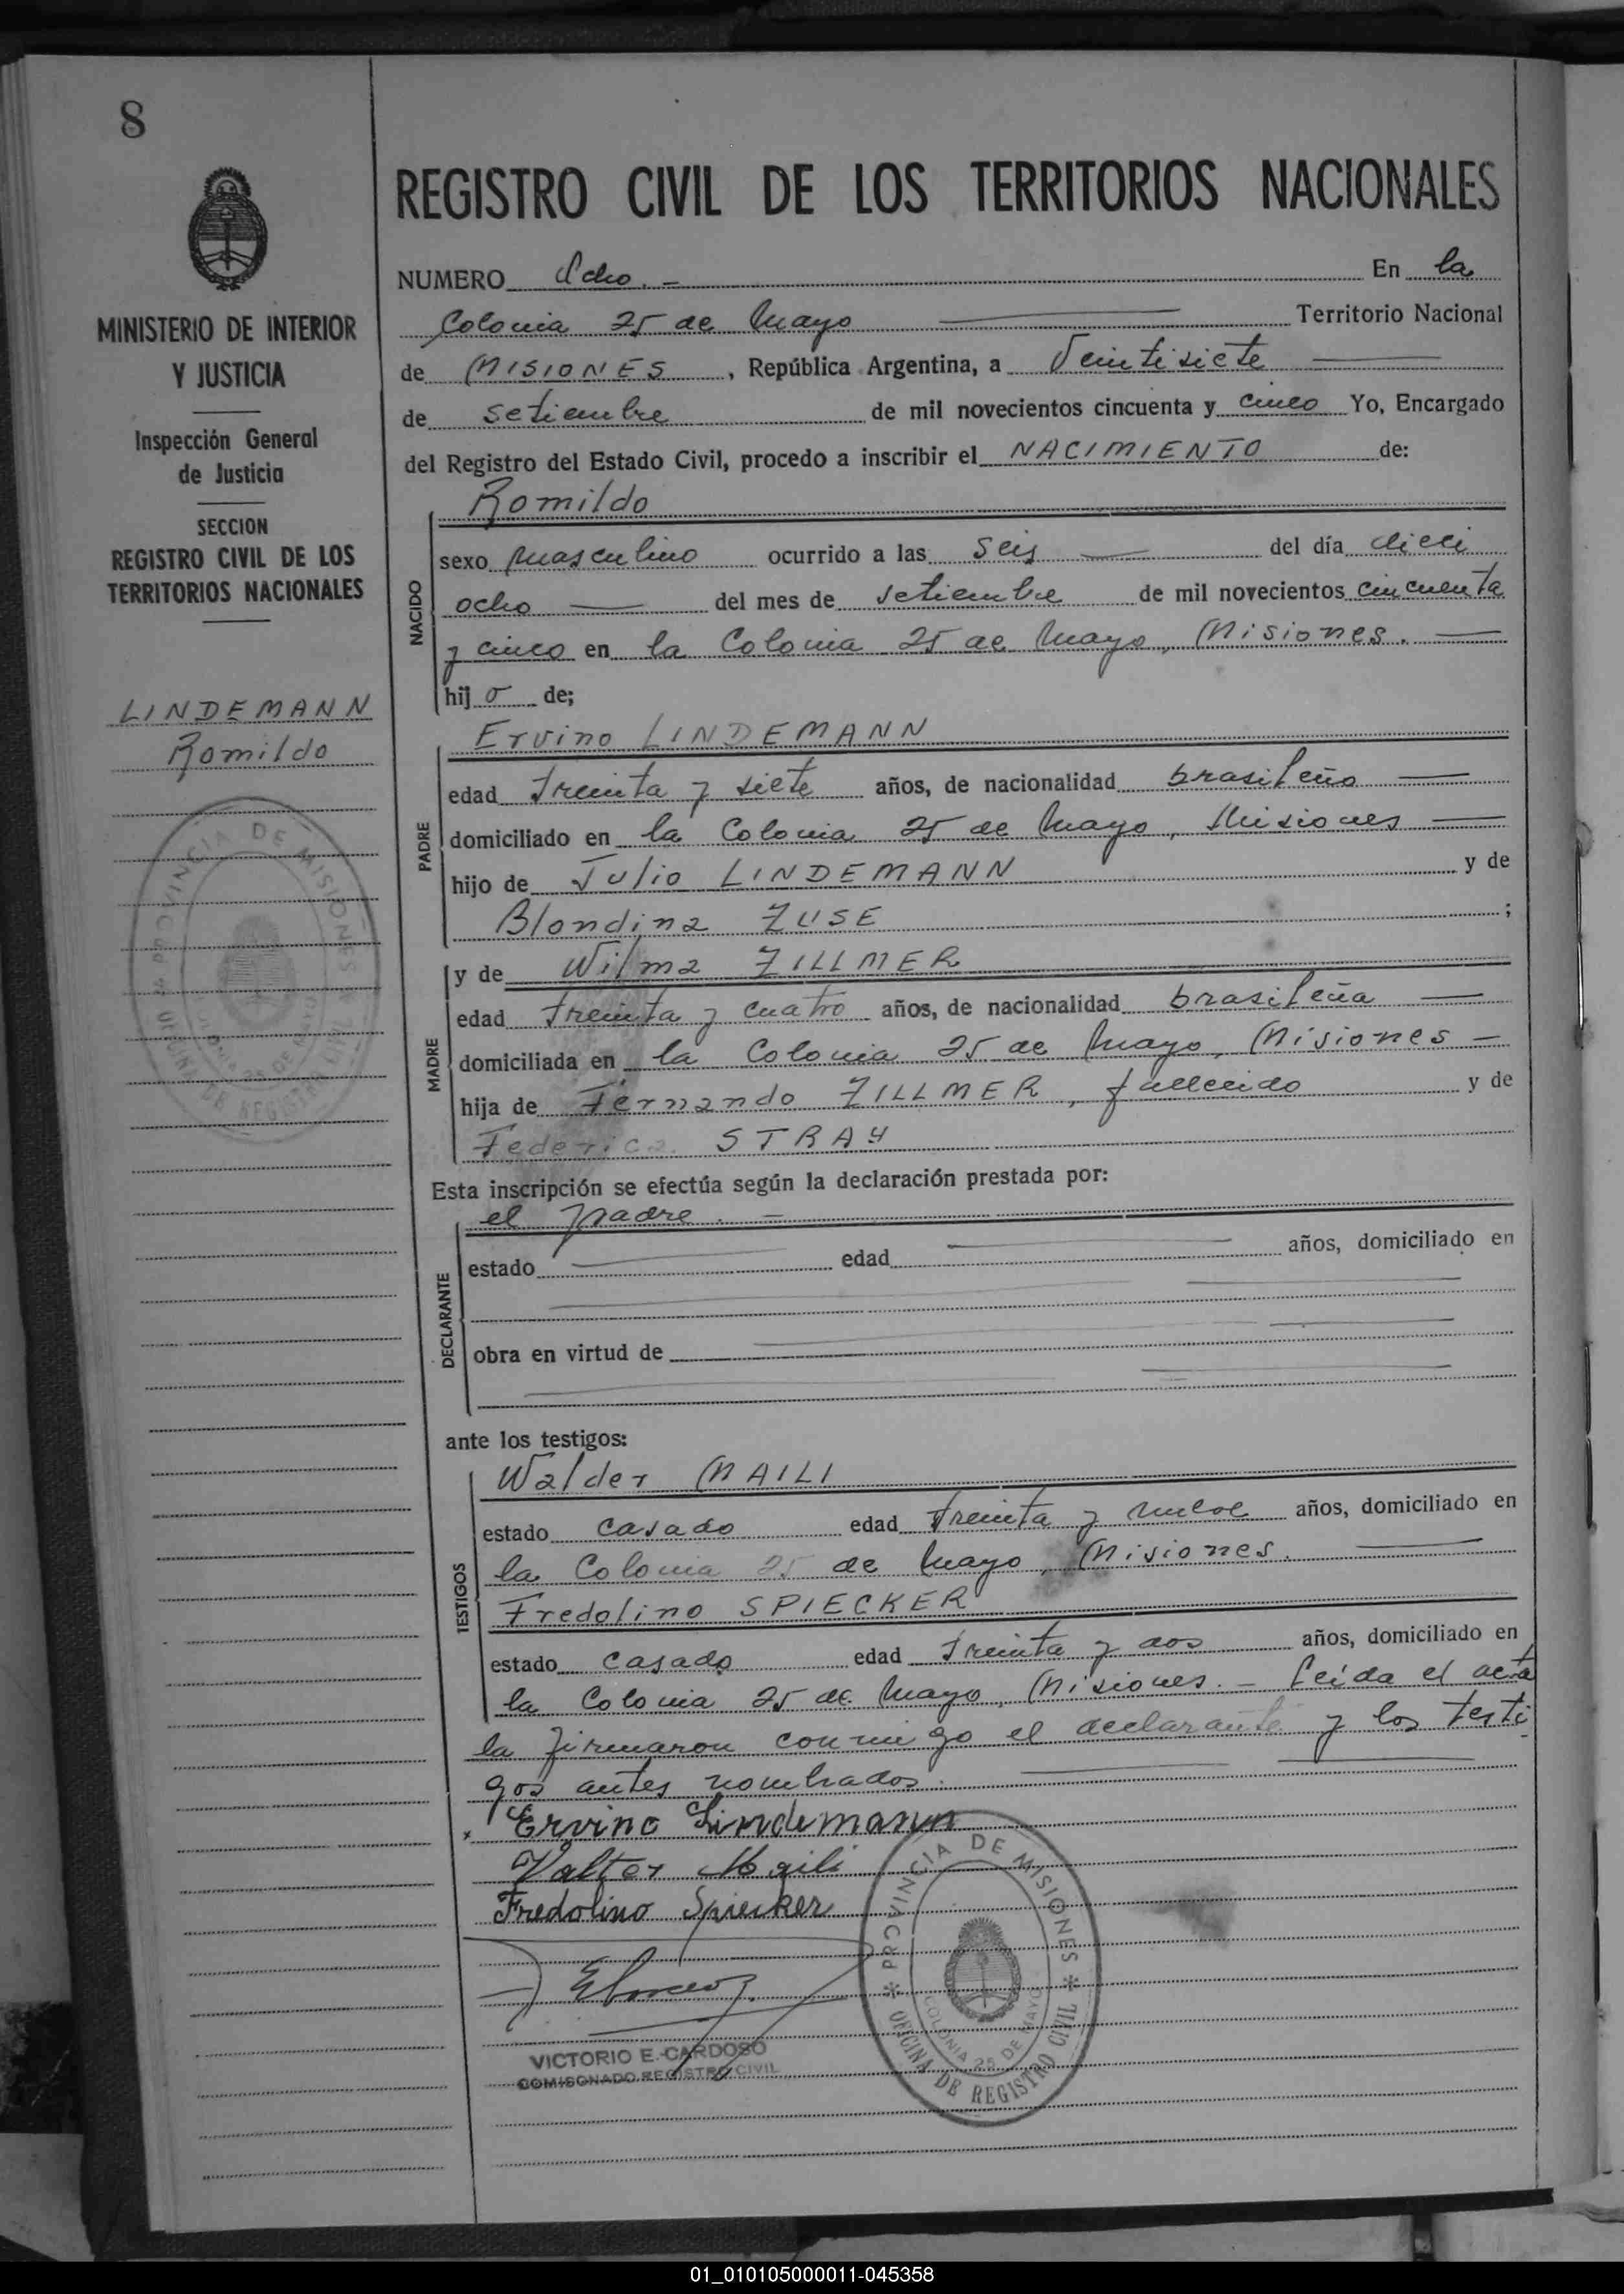 8
REGISTRO CIVIL DE LOS TERRITORIOS NACIONALES
MINISTERIO DE INTERIOR
Y JUSTICIA
Inspección General
de Justicia
SECCION
REGISTRO CIVIL DE LOS
TERRITORIOS NACIONALES
LINDEMANN
Romildo
PROVINCIA DE MISIONES
OFICINA DE REGISTRO CIVIL
COLONIA 25 DE MAYO
NUMERO Ocho. - En la
Colonia 25 de Mayo Territorio Nacional
de MISIONES, República Argentina, a Veintisiete
de setiembre de mil novecientos cincuenta y cinco Yo, Encargado
del Registro del Estado Civil, procedo a inscribir el NACIMIENTO de:
NACIDO
Romildo
sexo masculino ocurrido a las seis del día dieci
ocho del mes de setiembre de mil novecientos cincuenta
y cinco en la Colonia 25 de Mayo, Misiones.
hijo de;
PADRE
Ervino LINDEMANN
edad treinta y siete años, de nacionalidad brasileño
domiciliado en la Colonia 25 de Mayo, Misiones
hijo de Julio LINDEMANN y de
Blondina ZUSE ;
MADRE
y de Wilma ZILLMER
edad treinta y cuatro años, de nacionalidad brasileña
domiciliada en la Colonia 25 de Mayo, Misiones -
hija de Fernando ZILLMER, fallecido y de
Federica STRAY
Esta inscripción se efectúa según la declaración prestada por:
DECLARANTE
el padre. -
estado edad años, domiciliado en
obra en virtud de
ante los testigos:
TESTIGOS
Walder MAILI
estado casado edad treinta y nueve años, domiciliado en
la Colonia 25 de Mayo, Misiones.
Fredolino SPIECKER
estado casado edad treinta y dos años, domiciliado en
la Colonia 25 de Mayo, Misiones. - Leida el acta
la firmaron conmigo el declarante y los testi
gos antes nombrados.
Ervino Lindemann
Valter Maili
Fredolino Spiecker
PROVINCIA DE MISIONES
OFICINA DE REGISTRO CIVIL
COLONIA 25 DE MAYO
VICTORIO E. CARDOSO
COMISONADO REGISTRO CIVIL
01_010105000011-045358